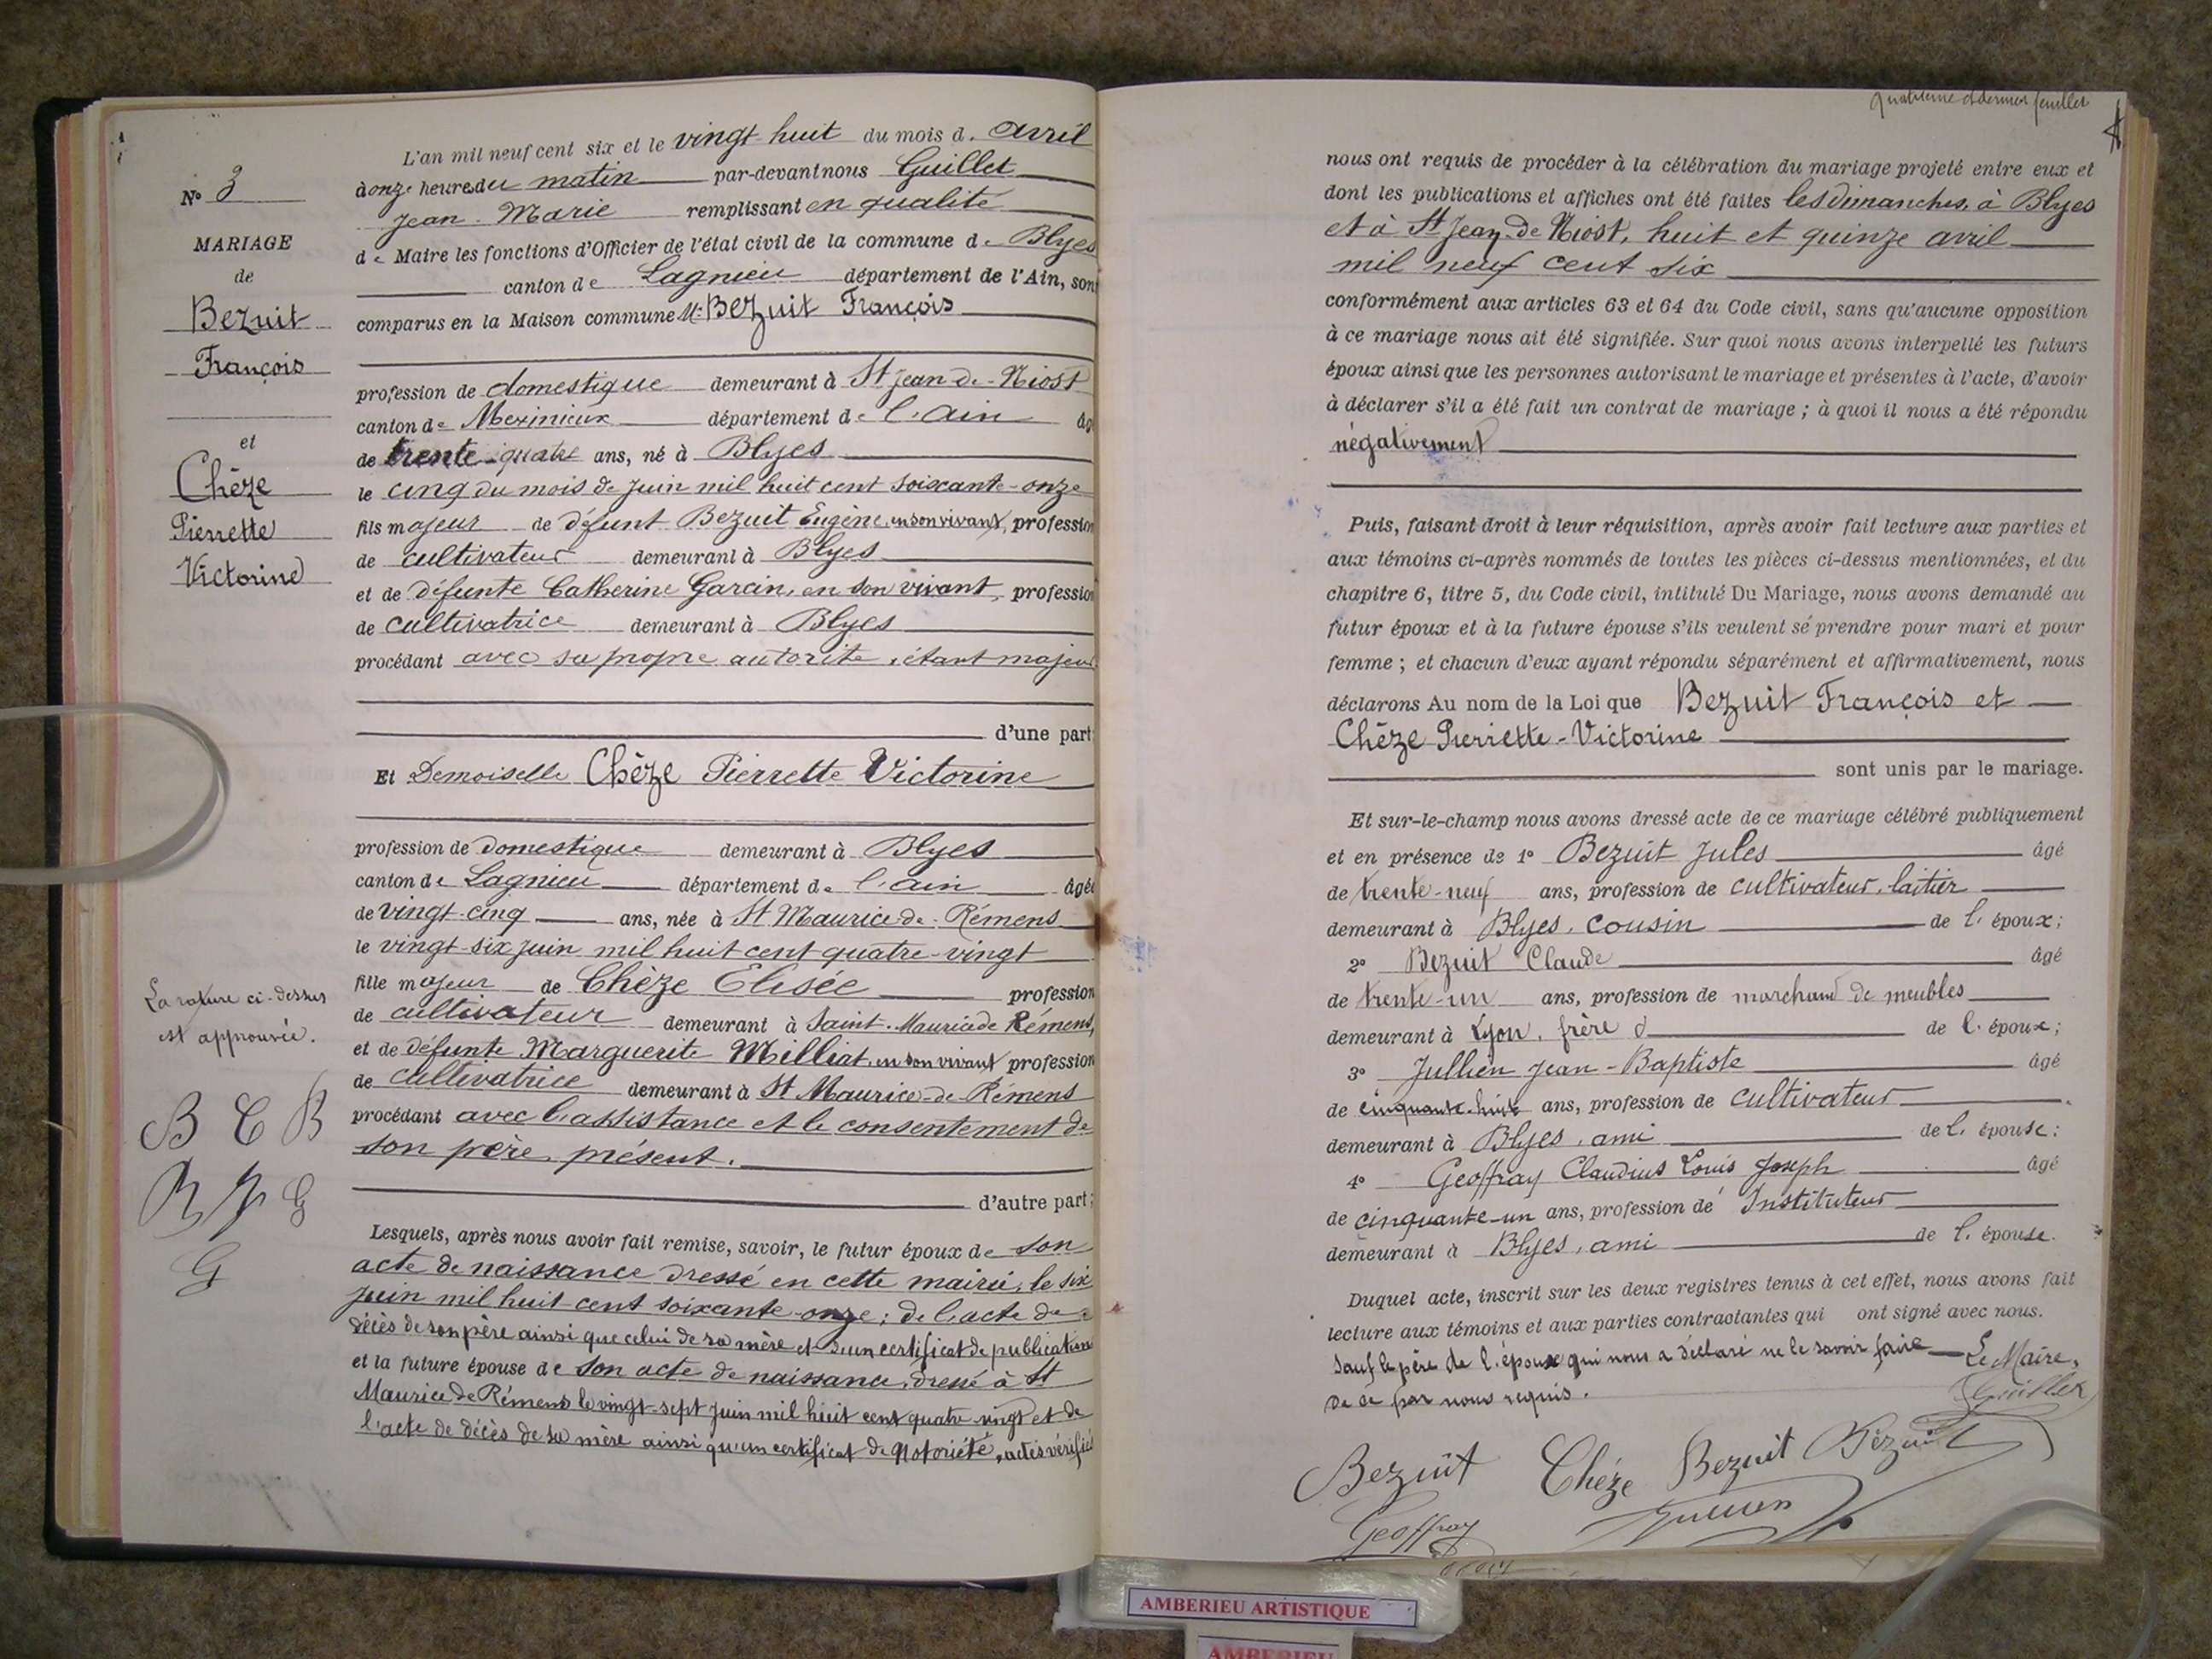 N° 3
MARIAGE
de
Bezuit
François
et
Chèze
Pierrette
Victorine
La rature ci-dessus
est approuvée.
B C B
B J G
G
L'an mil neuf cent six et le vingt-huit du mois d. avril
à onze heures du matin par-devant nous Guillet
Jean-Marie remplissant en qualité
de Maire les fonctions d'Officier de l'état civil de la commune de Blyes
canton de Lagnieu département de l'Ain, sont
comparus en la Maison commune Mr Bezuit François
profession de domestique demeurant à St Jean-de-Niost
canton de Meximieux département de l'Ain âg
de trente-quatre ans, né à Blyes
le cinq du mois de juin mil huit cent soixante-onze
fils majeur de défunt Bezuit Eugène, en son vivant, profession
de cultivateur demeurant à Blyes
et de défunte Catherine Garcin, en son vivant, profession
de cultivatrice demeurant à Blyes
procédant avec sa propre autorité, étant majeur
d'une part;
Et Demoiselle Chèze Pierrette Victorine
profession de domestique demeurant à Blyes
canton de Lagnieu département de l'Ain âgée
de vingt-cinq ans, née à St Maurice-de-Rémens
le vingt-six juin mil huit cent quatre-vingt
fille majeur de Chèze Elisée profession
de cultivateur demeurant à Saint-Maurice de Rémens,
et de défunte Marguerite Milliat, en son vivant profession
de cultivatrice demeurant à St Maurice-de-Rémens
procédant avec l'assistance et le consentement de
son père, présent.
d'autre part;
Lesquels, après nous avoir fait remise, savoir, le futur époux de son
acte de naissance dressé en cette mairie, le six
juin mil huit cent soixante-onze; de l'acte de
décès de son père ainsi que celui de sa mère et d'un certificat de publication
et la future épouse de son acte de naissance, dressé à St
Maurice de Rémens le vingt-sept juin mil huit cent quatre-vingt et de
l'acte de décès de sa mère ainsi qu'un certificat de notoriété, actes vérifiés
quatrième et dernier feuillet
nous ont requis de procéder à la célébration du mariage projeté entre eux et
dont les publications et affiches ont été faites les dimanches, à Blyes
et à St Jean-de-Niost, huit et quinze avril
mil neuf cent six
conformément aux articles 63 et 64 du Code civil, sans qu'aucune opposition
à ce mariage nous ait été signifiée. Sur quoi nous avons interpellé les futurs
époux ainsi que les personnes autorisant le mariage et présentes à l'acte, d'avoir
à déclarer s'il a été fait un contrat de mariage; à quoi il nous a été répondu
négativement
Puis, faisant droit à leur réquisition, après avoir fait lecture aux parties et
aux témoins ci-après nommés de toutes les pièces ci-dessus mentionnées, et du
chapitre 6, titre 5, du Code civil, intitulé Du Mariage, nous avons demandé au
futur époux et à la future épouse s'ils veulent se prendre pour mari et pour
femme; et chacun d'eux ayant répondu séparément et affirmativement, nous
déclarons Au nom de la Loi que Bezuit François et
Chèze Pierrette-Victorine
sont unis par le mariage.
Et sur-le-champ nous avons dressé acte de ce mariage célébré publiquement
et en présence de 1° Bezuit Jules âgé
de trente-neuf ans, profession de cultivateur, laitier
demeurant à Blyes, cousin de l'époux;
2° Bezuit Claude âgé
de trente-un ans, profession de marchand de meubles
demeurant à Lyon, frère de l'époux;
3° Jullien Jean-Baptiste âgé
de cinquante-huit ans, profession de cultivateur
demeurant à Blyes, ami de l'épouse;
4° Geoffray Claudius Louis Joseph âgé
de cinquante-un ans, profession de Instituteur
demeurant à Blyes, ami de l'épouse.
Duquel acte, inscrit sur les deux registres tenus à cet effet, nous avons fait
lecture aux témoins et aux parties contractantes qui ont signé avec nous.
Sauf le père de l'épouse qui nous a déclaré ne le savoir faire
de ce par nous requis.
Le Maire,
Guillet
Bezuit Chéze Bezuit Bezuit
Geoffray
AMBERIEU ARTISTIQUE
AMBERIEU